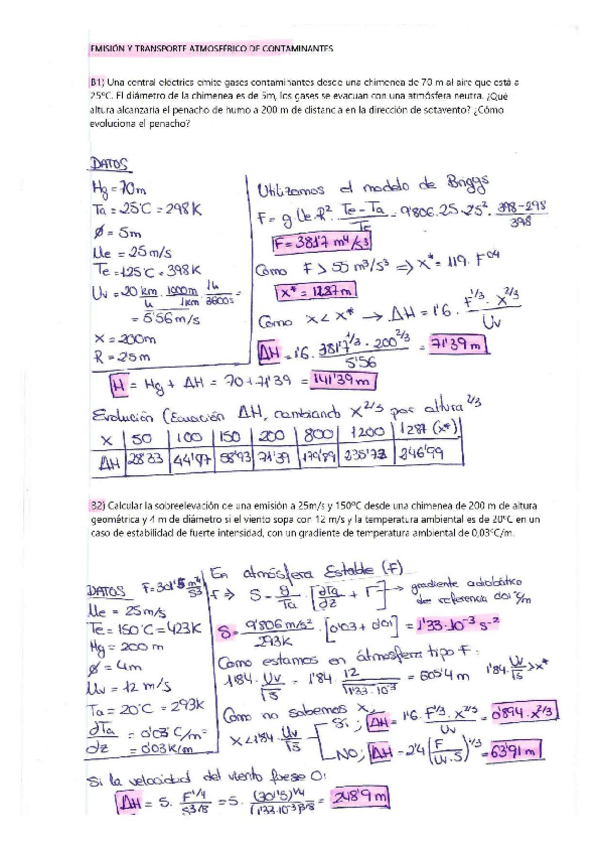 EMISIÓN Y TRANSPORTE ATMOSFÉRICO DE CONTAMINANTES
B1) Una central eléctrica emite gases contaminantes desde una chimenea de 70 m al aire que está a
25ºC. El diámetro de la chimenea es de 5m, los gases se evacuan con una atmósfera neutra. ¿Qué
altura alcanzaría el penacho de humo a 200 m de distancia en la dirección de sotavento? ¿Cómo
evoluciona el penacho?
DATOS
Hg = 70m
Ta = 25ºC = 298K
Ø = 5m
Ue = 25 m/s
Te = 125ºC = 398K
Uv = 20 km/h · 1000m/1km · 1h/3600s =
= 5'56 m/s
X = 200m
R = 2'5m
Utilizamos el modelo de Briggs
F = g·Ue·R² · (Te - Ta)/Te = 9'806·25·2'5² · (398-298)/398
F = 381'7 m⁴/s³
Como F > 55 m³/s³ ⇒ X* = 119·F^0'4
X* = 1287 m
Como X < X* → ΔH = 1'6 · F^1/3 · X^2/3 / Uv
ΔH = 1'6 · 381'7^1/3 · 200^2/3 / 5'56 = 71'39 m
H = Hg + ΔH = 70 + 71'39 = 141'39 m
Evolución (Ecuación ΔH, cambiando X^2/3 por altura^2/3
X | 50 | 100 | 150 | 200 | 800 | 1200 | 1287 (X*)
ΔH | 28'33 | 44'97 | 58'93 | 71'39 | 179'89 | 235'73 | 246'99
B2) Calcular la sobreelevación de una emisión a 25m/s y 150ºC desde una chimenea de 200 m de altura
geométrica y 4 m de diámetro si el viento sopa con 12 m/s y la temperatura ambiental es de 20ºC en un
caso de estabilidad de fuerte intensidad, con un gradiente de temperatura ambiental de 0,03ºC/m.
DATOS F = 301'5 m⁴/s³
Ue = 25 m/s
Te = 150ºC = 423K
Hg = 200 m
Ø = 4m
Uv = 12 m/s
Ta = 20ºC = 293K
dTa/dz = 0'03ºC/m = 0'03 K/m
En atmósfera Estable (F)
S = g/Ta · [dTa/dz + Γ] → gradiente adiabático
de referencia 0'01 º/m
S = 9'806 m/s²/293K · [0'03 + 0'01] = 1'33·10⁻³ s⁻²
Como estamos en átmosfera tipo F:
1'84 · Uv/√S = 1'84 · 12/√1'33·10⁻³ = 605'4 m 1'84·Uv/√S > X*
Como no sabemos X,
X < 1'84 · Uv/√S
Si; ΔH = 1'6 · F^1/3 · X^2/3 / Uv = 0'894 · X^2/3
NO; ΔH = 2'4 (F/Uv·S)^1/3 = 63'91 m
Si la velocidad del viento fuese 0:
ΔH = 5 · F^1/4 / S^3/8 = 5 · (301'5)^1/4 / (1'33·10⁻³)^3/8 = 248'9 m